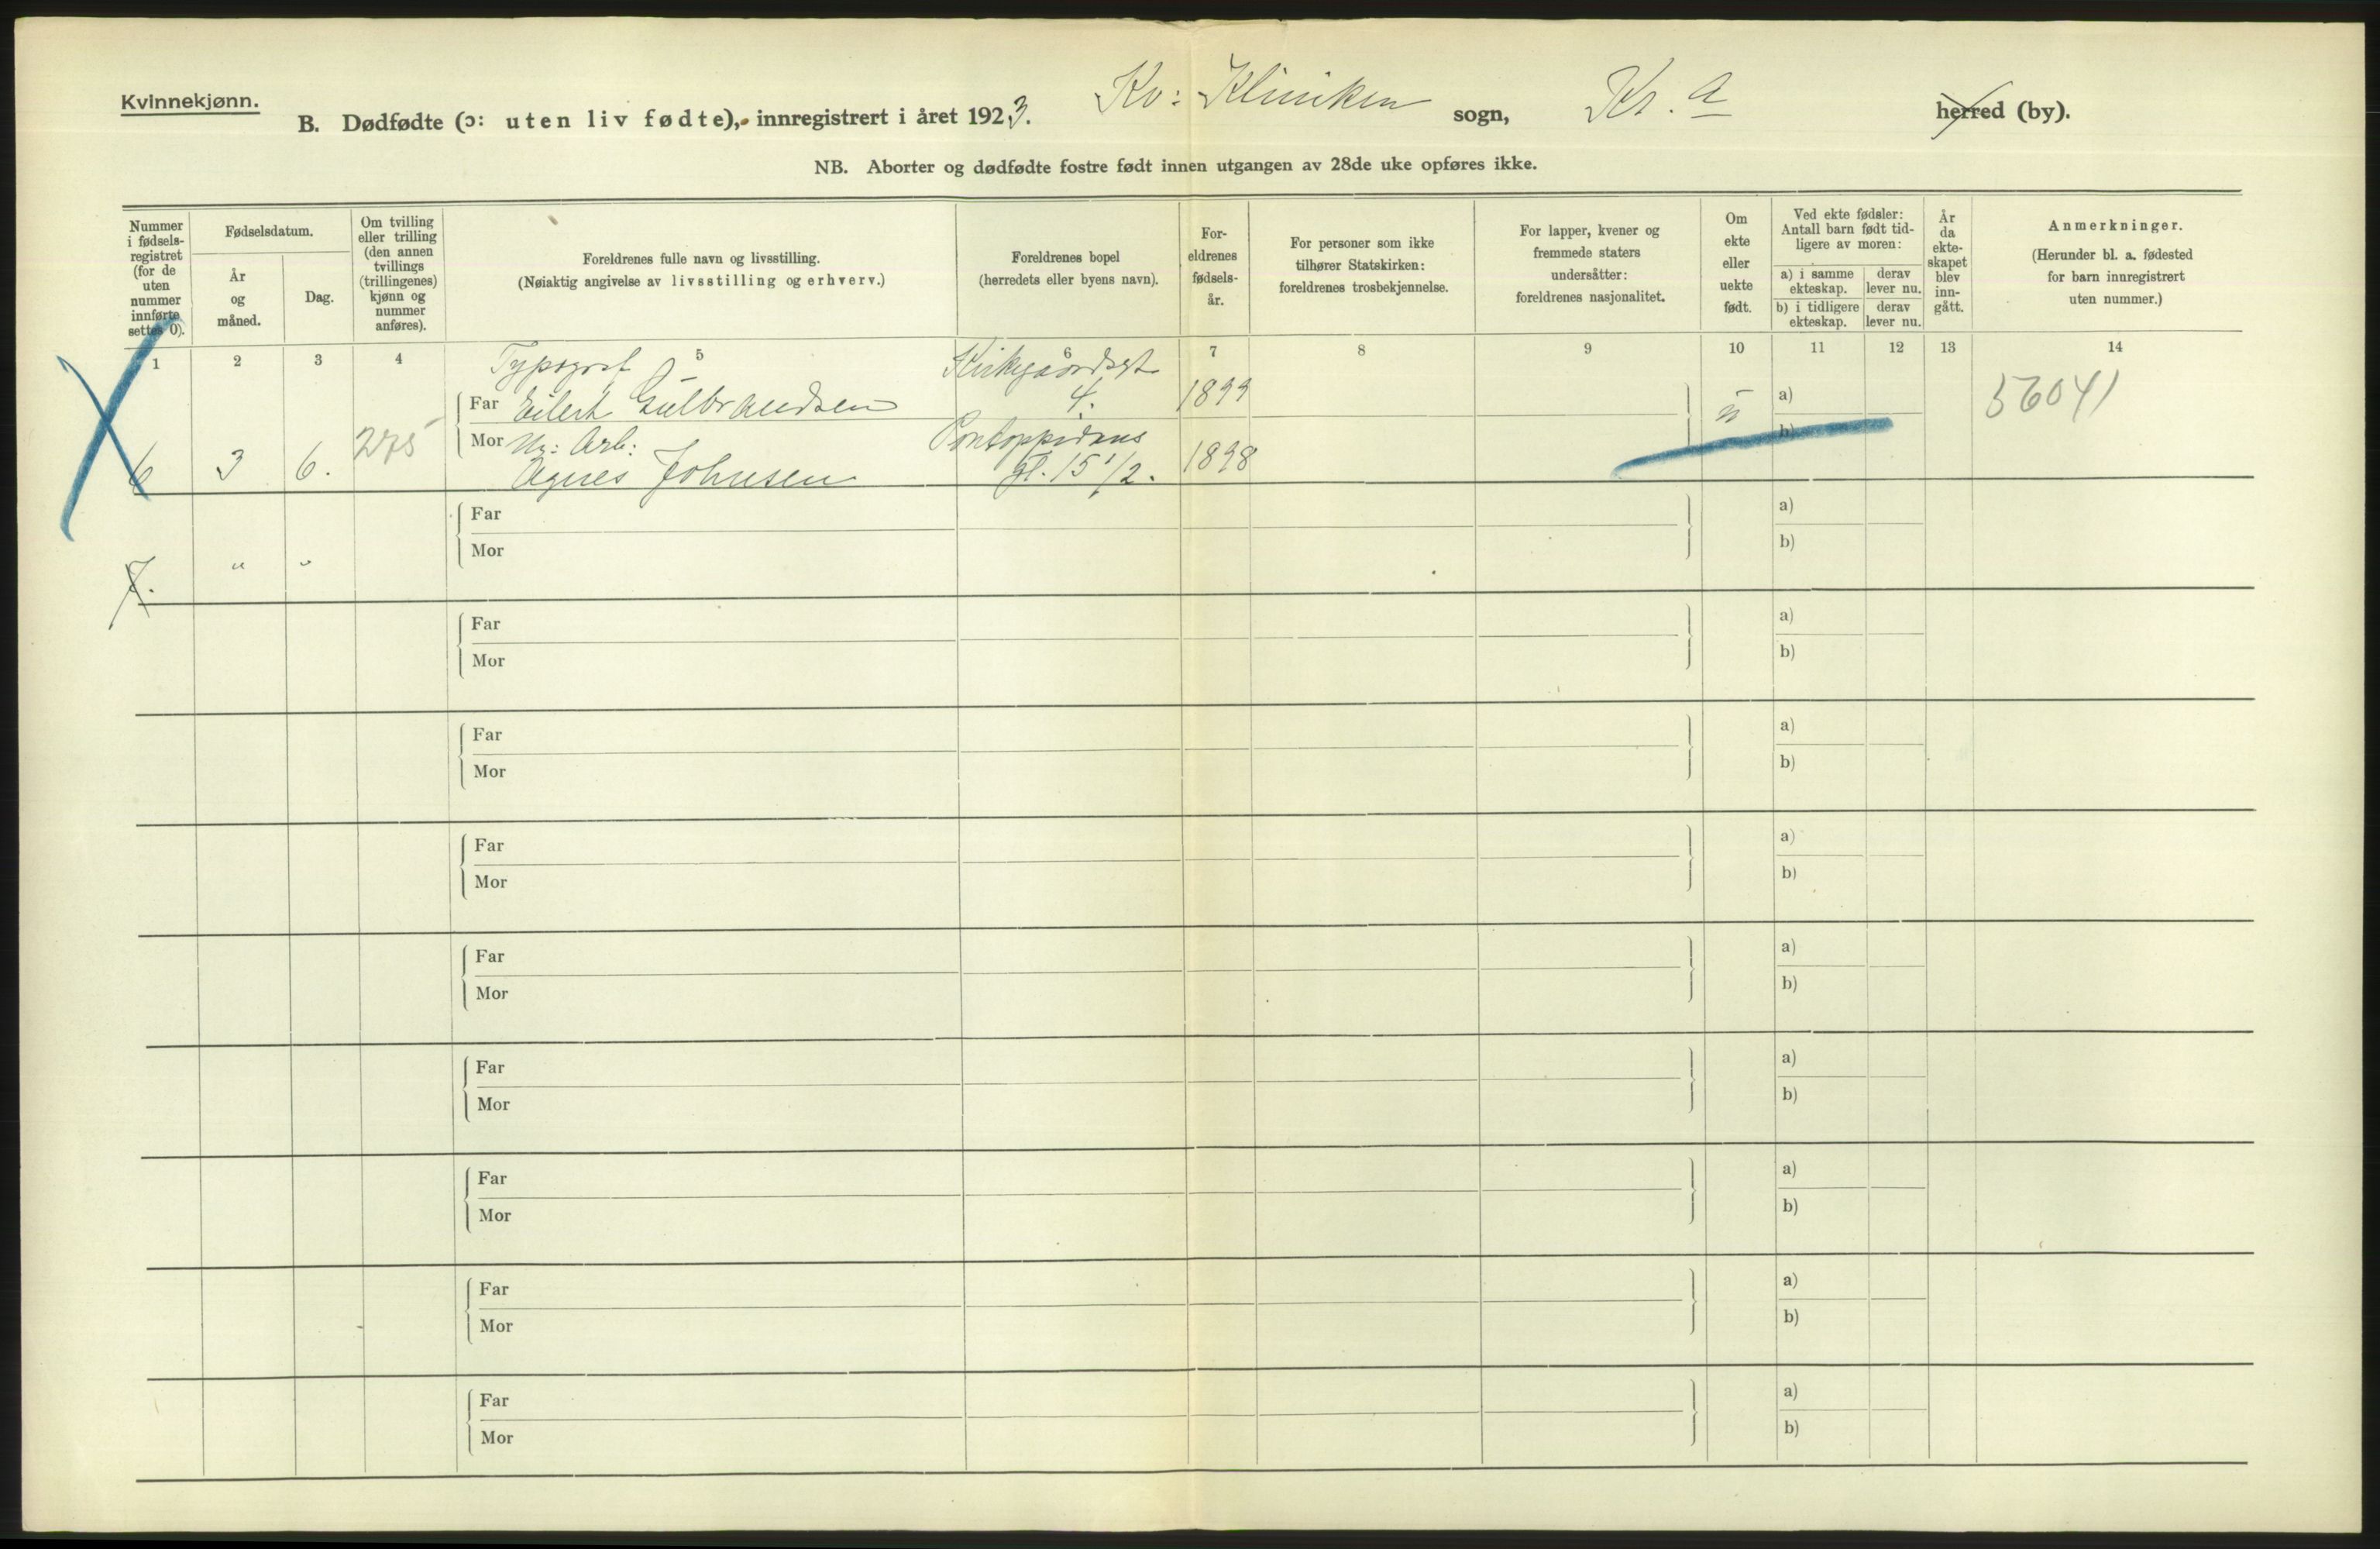 Kvinnekjønn.
B. Dødfødte (ɔ: uten liv fødte), innregistrert i året 1923. Kv: Kliniken sogn, Kr. a herred (by).
NB. Aborter og dødfødte fostre født innen utgangen av 28de uke opføres ikke.
Nummer i fødsels-registret (for de uten nummer innførte settes 0).
Fødselsdatum.
År og måned.
Dag.
Om tvilling eller trilling (den annen tvillings (trillingenes) kjønn og nummer anføres).
Foreldrenes fulle navn og livsstilling.
(Nøiaktig angivelse av livsstilling og erhverv.)
Foreldrenes bopel
(herredets eller byens navn).
For-eldrenes fødsels-år.
For personer som ikke tilhører Statskirken: foreldrenes trosbekjennelse.
For lapper, kvener og fremmede staters undersåtter: foreldrenes nasjonalitet.
Om ekte eller uekte født.
Ved ekte fødsler: Antall barn født tid-ligere av moren:
a) i samme ekteskap.
derav lever nu.
b) i tidligere ekteskap.
derav lever nu.
År da ekte-skapet blev inn-gått.
Anmerkninger.
(Herunder bl. a. fødested for barn innregistrert uten nummer.)
1 2 3 4 5 6 7 8 9 10 11 12 13 14
Typograf Kirkegaardsgt
Far Eilert Gulbrandsen 4. 1899 ü a) 56041
275 Mor Ug: Arb: Pontoppidans b)
6 3 6. Agnes Johnsen gt. 15 1/2. 1898
Far a)
Mor b)
7. " "
Far a)
Mor b)
Far a)
Mor b)
Far a)
Mor b)
Far a)
Mor b)
Far a)
Mor b)
Far a)
Mor b)
Far a)
Mor b)
Far a)
Mor b)